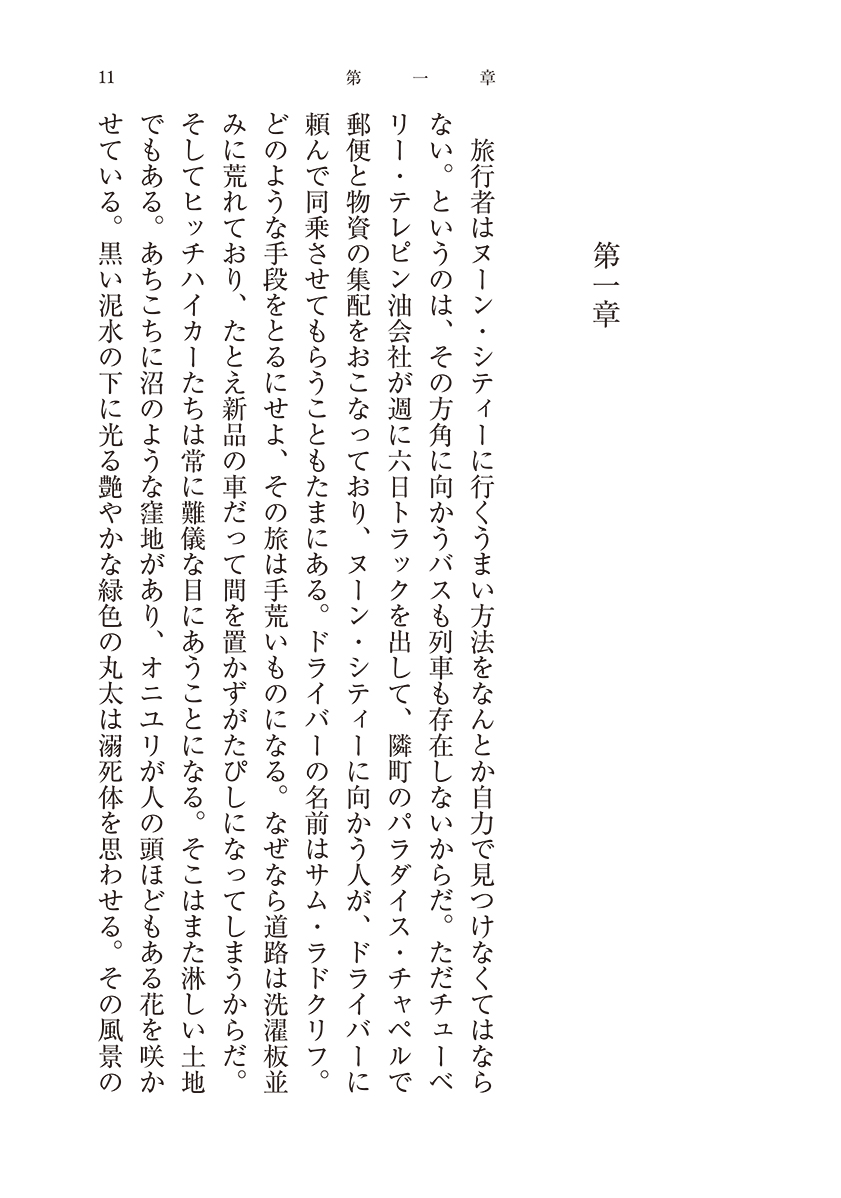 11
第一章
第一章
旅行者はヌーン・シティーに行くうまい方法をなんとか自力で見つけなくてはなら
ない。というのは、その方角に向かうバスも列車も存在しないからだ。ただチューベ
リー・テレピン油会社が週に六日トラックを出して、隣町のパラダイス・チャペルで
郵便と物資の集配をおこなっており、ヌーン・シティーに向かう人が、ドライバーに
頼んで同乗させてもらうこともたまにある。ドライバーの名前はサム・ラドクリフ。
どのような手段をとるにせよ、その旅は手荒いものになる。なぜなら道路は洗濯板並
みに荒れており、たとえ新品の車だって間を置かずがたぴしになってしまうからだ。
そしてヒッチハイカーたちは常に難儀な目にあうことになる。そこはまた淋しい土地
でもある。あちこちに沼のような窪地があり、オニユリが人の頭ほどもある花を咲か
せている。黒い泥水の下に光る艶やかな緑色の丸太は溺死体を思わせる。その風景の